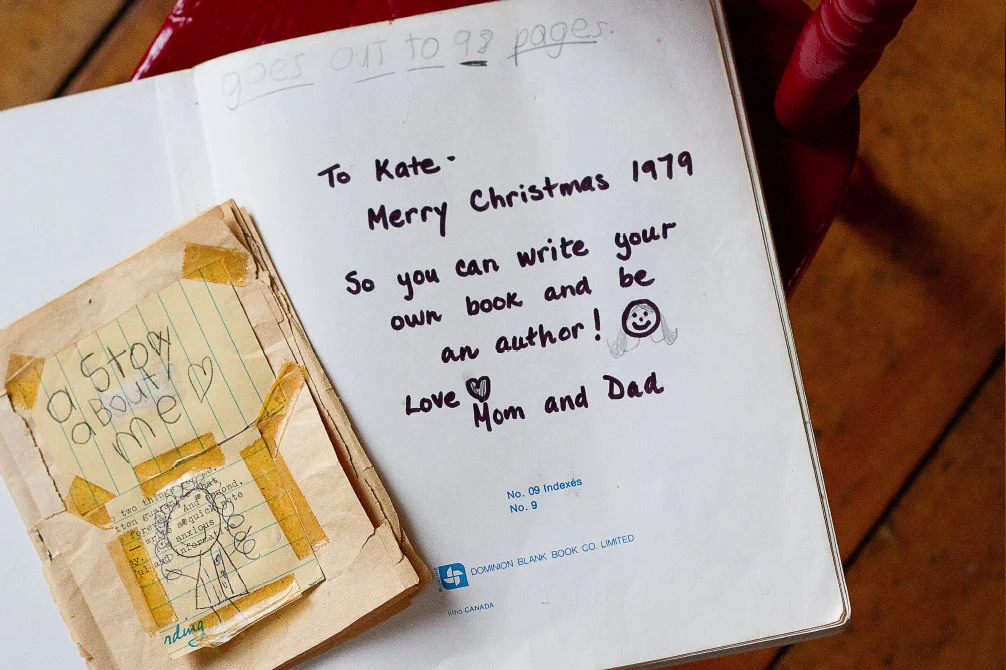 goes out to 98 pages.
To Kate-
Merry Christmas 1979
So you can write your
own book and be
an author!
Love
Mom and Dad
No. 09 Indexés
No. 9
DOMINION BLANK BOOK CO. LIMITED
litho CANADA
a Story
aBouty
me
two things
tten guaran
forever. And
second,
a quick note
anxious
informat
rding